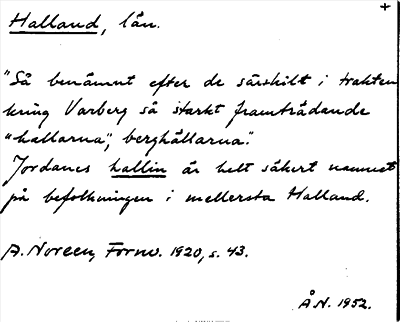 +
Halland, län.
"Så benämnt efter de särskilt i trakten
kring Varberg så starkt framträdande
"hallarna", berghällarna".
Jordanes hallin är helt säkert namnet
på befolkningen i mellersta Halland.
A. Noreen, Fornv. 1920, s. 43.
Å.N. 1952.